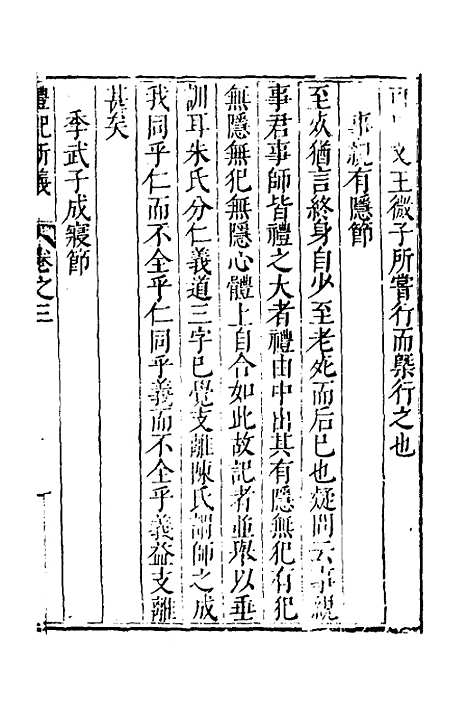 文王微子所嘗行而槩行之也
事親有隱節
至死猶言終身自少至老死而后已也疑問云事親
事君事師皆禮之大者禮由中出其有隱無犯有犯
無隱無犯無隱心體上自合如此故記者並舉以垂
訓耳朱氏分仁義道三字已覺支離陳氏謂師之成
我同乎仁而不全乎仁同乎義而不全乎義益支離
甚矣
季武子成寢節
禮記新義 卷之三